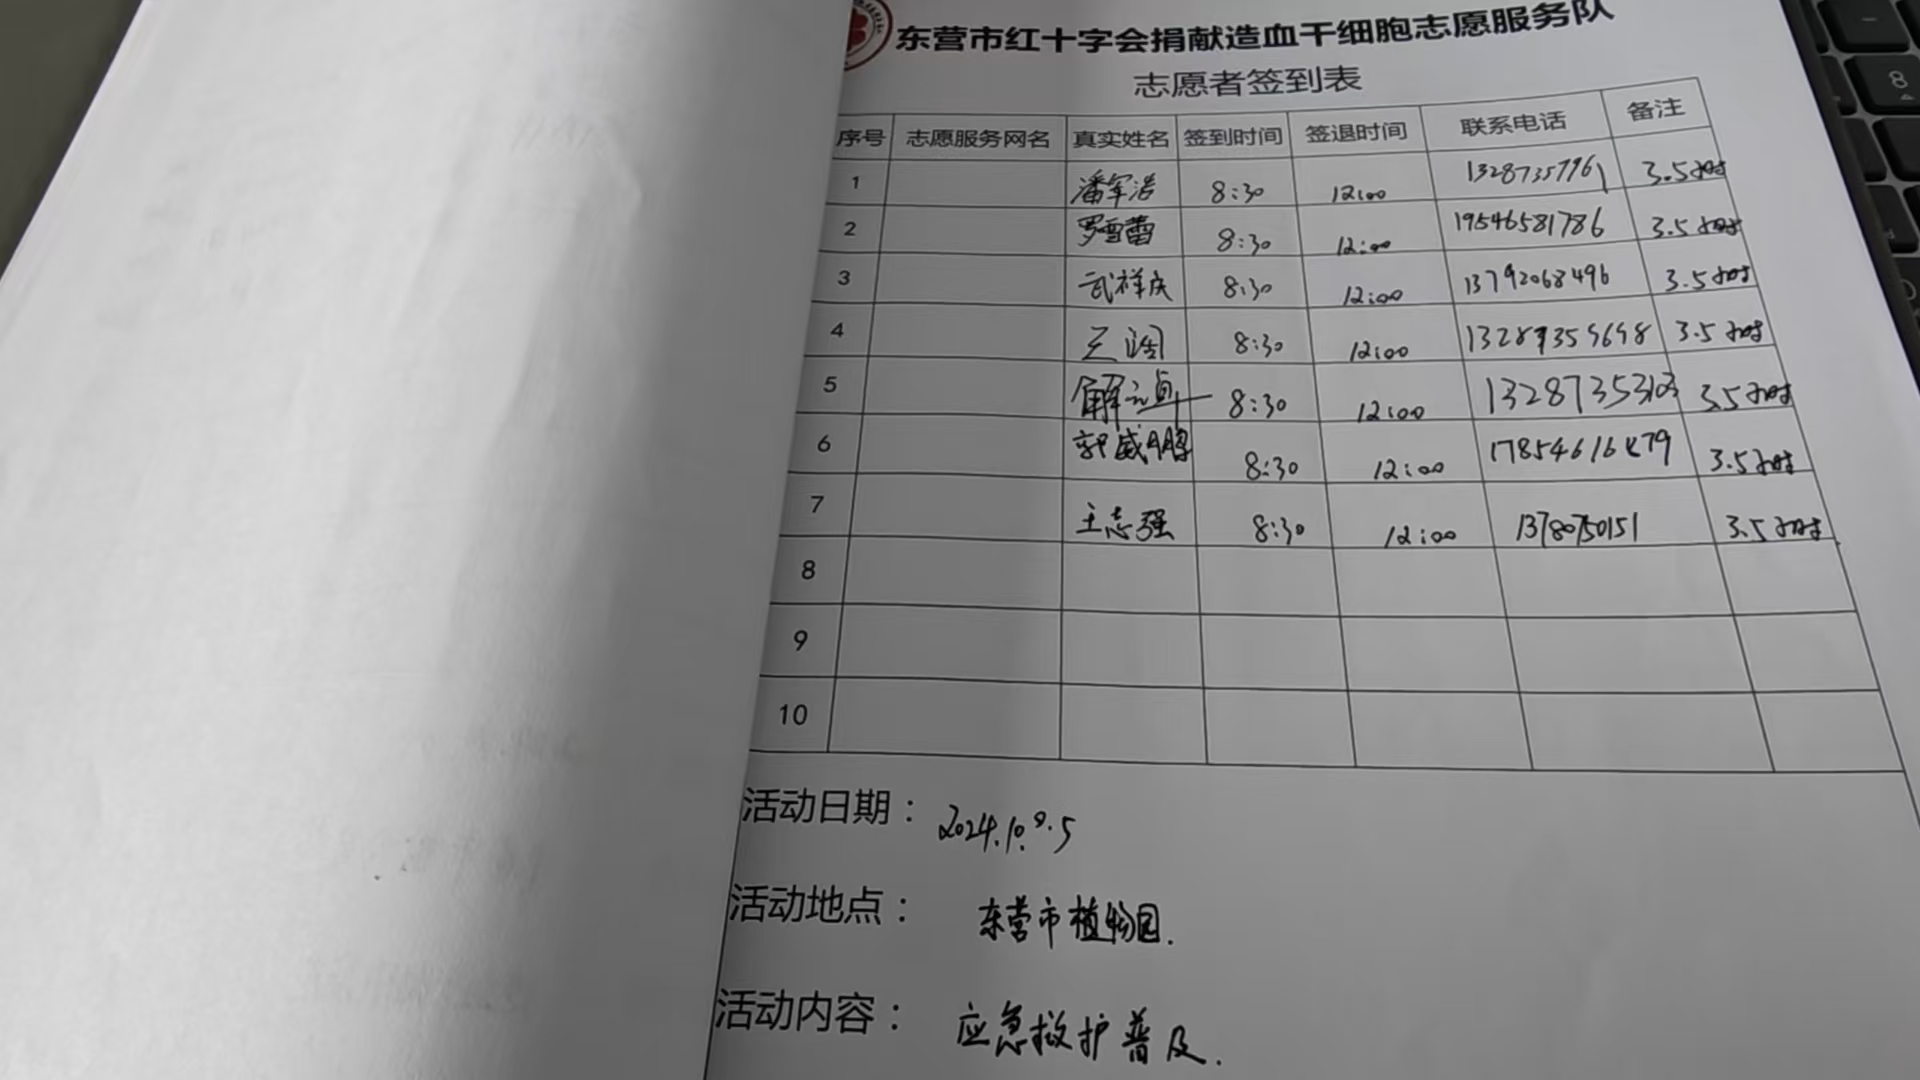 东营市红十字会捐献造血干细胞志愿服务队
志愿者签到表
序号 志愿服务网名 真实姓名 签到时间 签退时间 联系电话 备注
1 潘军浩 8:30 12:00 13287357961 3.5小时
2 罗雪蕾 8:30 12:00 19546581786 3.5小时
3 武祥庆 8:30 12:00 13792068496 3.5小时
4 8:30 12:00 3.5小时
5 8:30 12:00 13287353103 3.5小时
6 郭威鹏 8:30 12:00 3.5小时
7 王志强 8:30 12:00 3.5小时
8
9
10
活动日期：
活动地点： 东营市植物园.
活动内容： 应急救护普及.